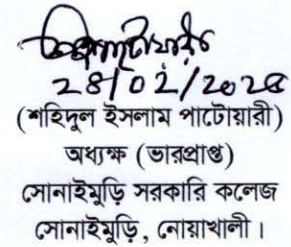 (শহিদুল ইসলাম পাটোয়ারী)
অধ্যক্ষ (ভারপ্রাপ্ত)
সোনাইমুড়ি সরকারি কলেজ
সোনাইমুড়ি, নোয়াখালী।